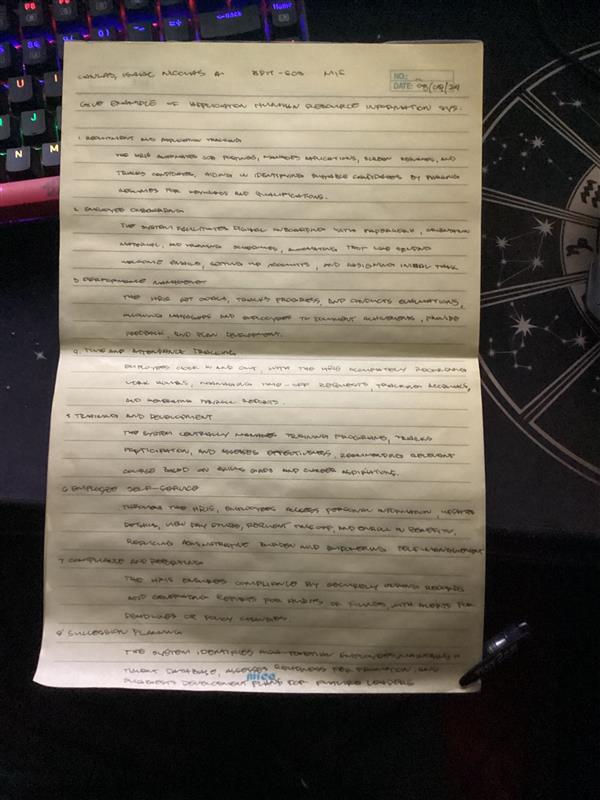 ISAAC NICOLAS A.
NO.:
DATE: 09/09/24
GIVE EXAMPLE OF APPLICATION HUMAN RESOURCE INFORMATION SYS.
1. RECRUITMENT AND APPLICATION TRACKING
THE HRIS AUTOMATES JOB POSTINGS, MANAGES APPLICATIONS, SCREEN RESUMES, AND
TRACKS CANDIDATES, AIDING IN IDENTIFYING SUITABLE CANDIDATES BY PARSING
RESUMES FOR KEYWORDS AND QUALIFICATIONS.
2. EMPLOYEE ONBOARDING
THE SYSTEM FACILITATES DIGITAL ONBOARDING WITH PAPERWORK, ORIENTATION
MATERIAL, AND TRAINING SCHEDULES, AUTOMATING TASK LIKE SENDING
WELCOME EMAILS, SETTING UP ACCOUNTS, AND ASSIGNING INITIAL TASK
3. PERFORMANCE MANAGEMENT
THE HRIS SET GOALS, TRACKS PROGRESS, AND CONDUCTS EVALUATIONS,
ALLOWING MANAGERS AND EMPLOYEES TO DOCUMENT ACHIEVEMENTS, PROVIDE
FEEDBACK, AND PLAN DEVELOPMENT.
4. TIME AND ATTENDANCE TRACKING
EMPLOYEES CLOCK IN AND OUT, WITH THE HRIS ACCURATELY RECORDING
WORK HOURS, MANAGING TIME-OFF REQUESTS, TRACKING ACCRUALS,
AND GENERATING PAYROLL REPORTS.
5 TRAINING AND DEVELOPMENT
THE SYSTEM CENTRALLY MANAGES TRAINING PROGRAMS, TRACKS
PARTICIPATION, AND ASSESSES EFFECTIVENESS, RECOMMENDING RELEVANT
COURSE BASED ON SKILLS GAPS AND CAREER ASPIRATIONS.
6 EMPLOYEE SELF-SERVICE
THROUGH THE HRIS, EMPLOYEES ACCESS PERSONAL INFORMATION, UPDATE
DETAILS, VIEW PAY STUBS, REQUEST TIME OFF, AND ENROLL IN BENEFITS,
REDUCING ADMINISTRATIVE BURDEN AND EMPOWERING SELF-MANAGEMENT
7 COMPLIANCE AND REPORTING
THE HRIS ENSURES COMPLIANCE BY SECURELY STORING RECORDS
AND GENERATING REPORTS FOR AUDITS OR FILINGS, WITH ALERTS FOR
DEADLINES OR POLICY CHANGES.
8 SUCCESSION PLANNING
THE SYSTEM IDENTIFIES HIGH-POTENTIAL EMPLOYEES, MAINTAINS A
TALENT DATABASE, ASSESSES READINESS FOR PROMOTION, AND
SUGGESTS DEVELOPMENT PLANS FOR FUTURE LEADERS
mico